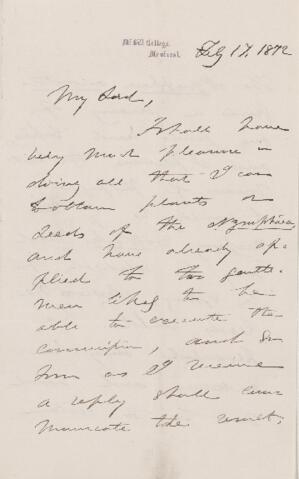 McGill College,
Montreal.
Feby 17, 1872
My Lord,
I shall have
very much pleasure in
doing all that I can
to obtain plants or
seeds of the Nymphaea
and have already ap-
plied to two gentle-
men likely to be
able to execute the
commission, and so
soon as I receive
a reply shall com-
municate the result.